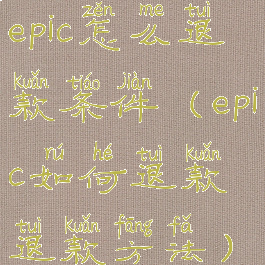 zěn me tuì
epic怎么退
kuǎn tiáo jiàn
款条件(epi
rú hé tuì kuǎn
c如何退款
tuì kuǎn fāng fǎ
退款方法)